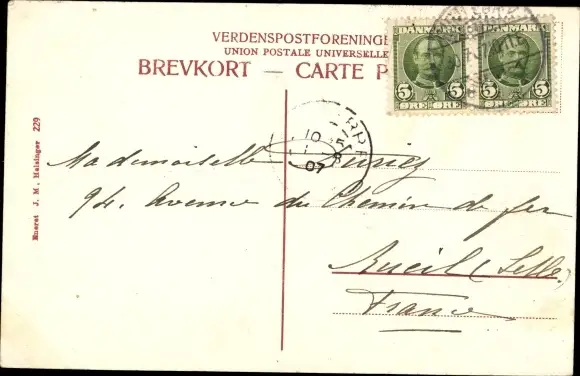 VERDENSPOSTFORENING
UNION POSTALE UNIVERSELLE
BREVKORT — CARTE P
DANMARK
5 5
ØRE ØRE
DANMARK
5 5
ØRE ØRE
10
07
Mademoiselle
94. Avenue du Chemin de fer
Rueil (
France
Eneret J. M., Helsingør 229